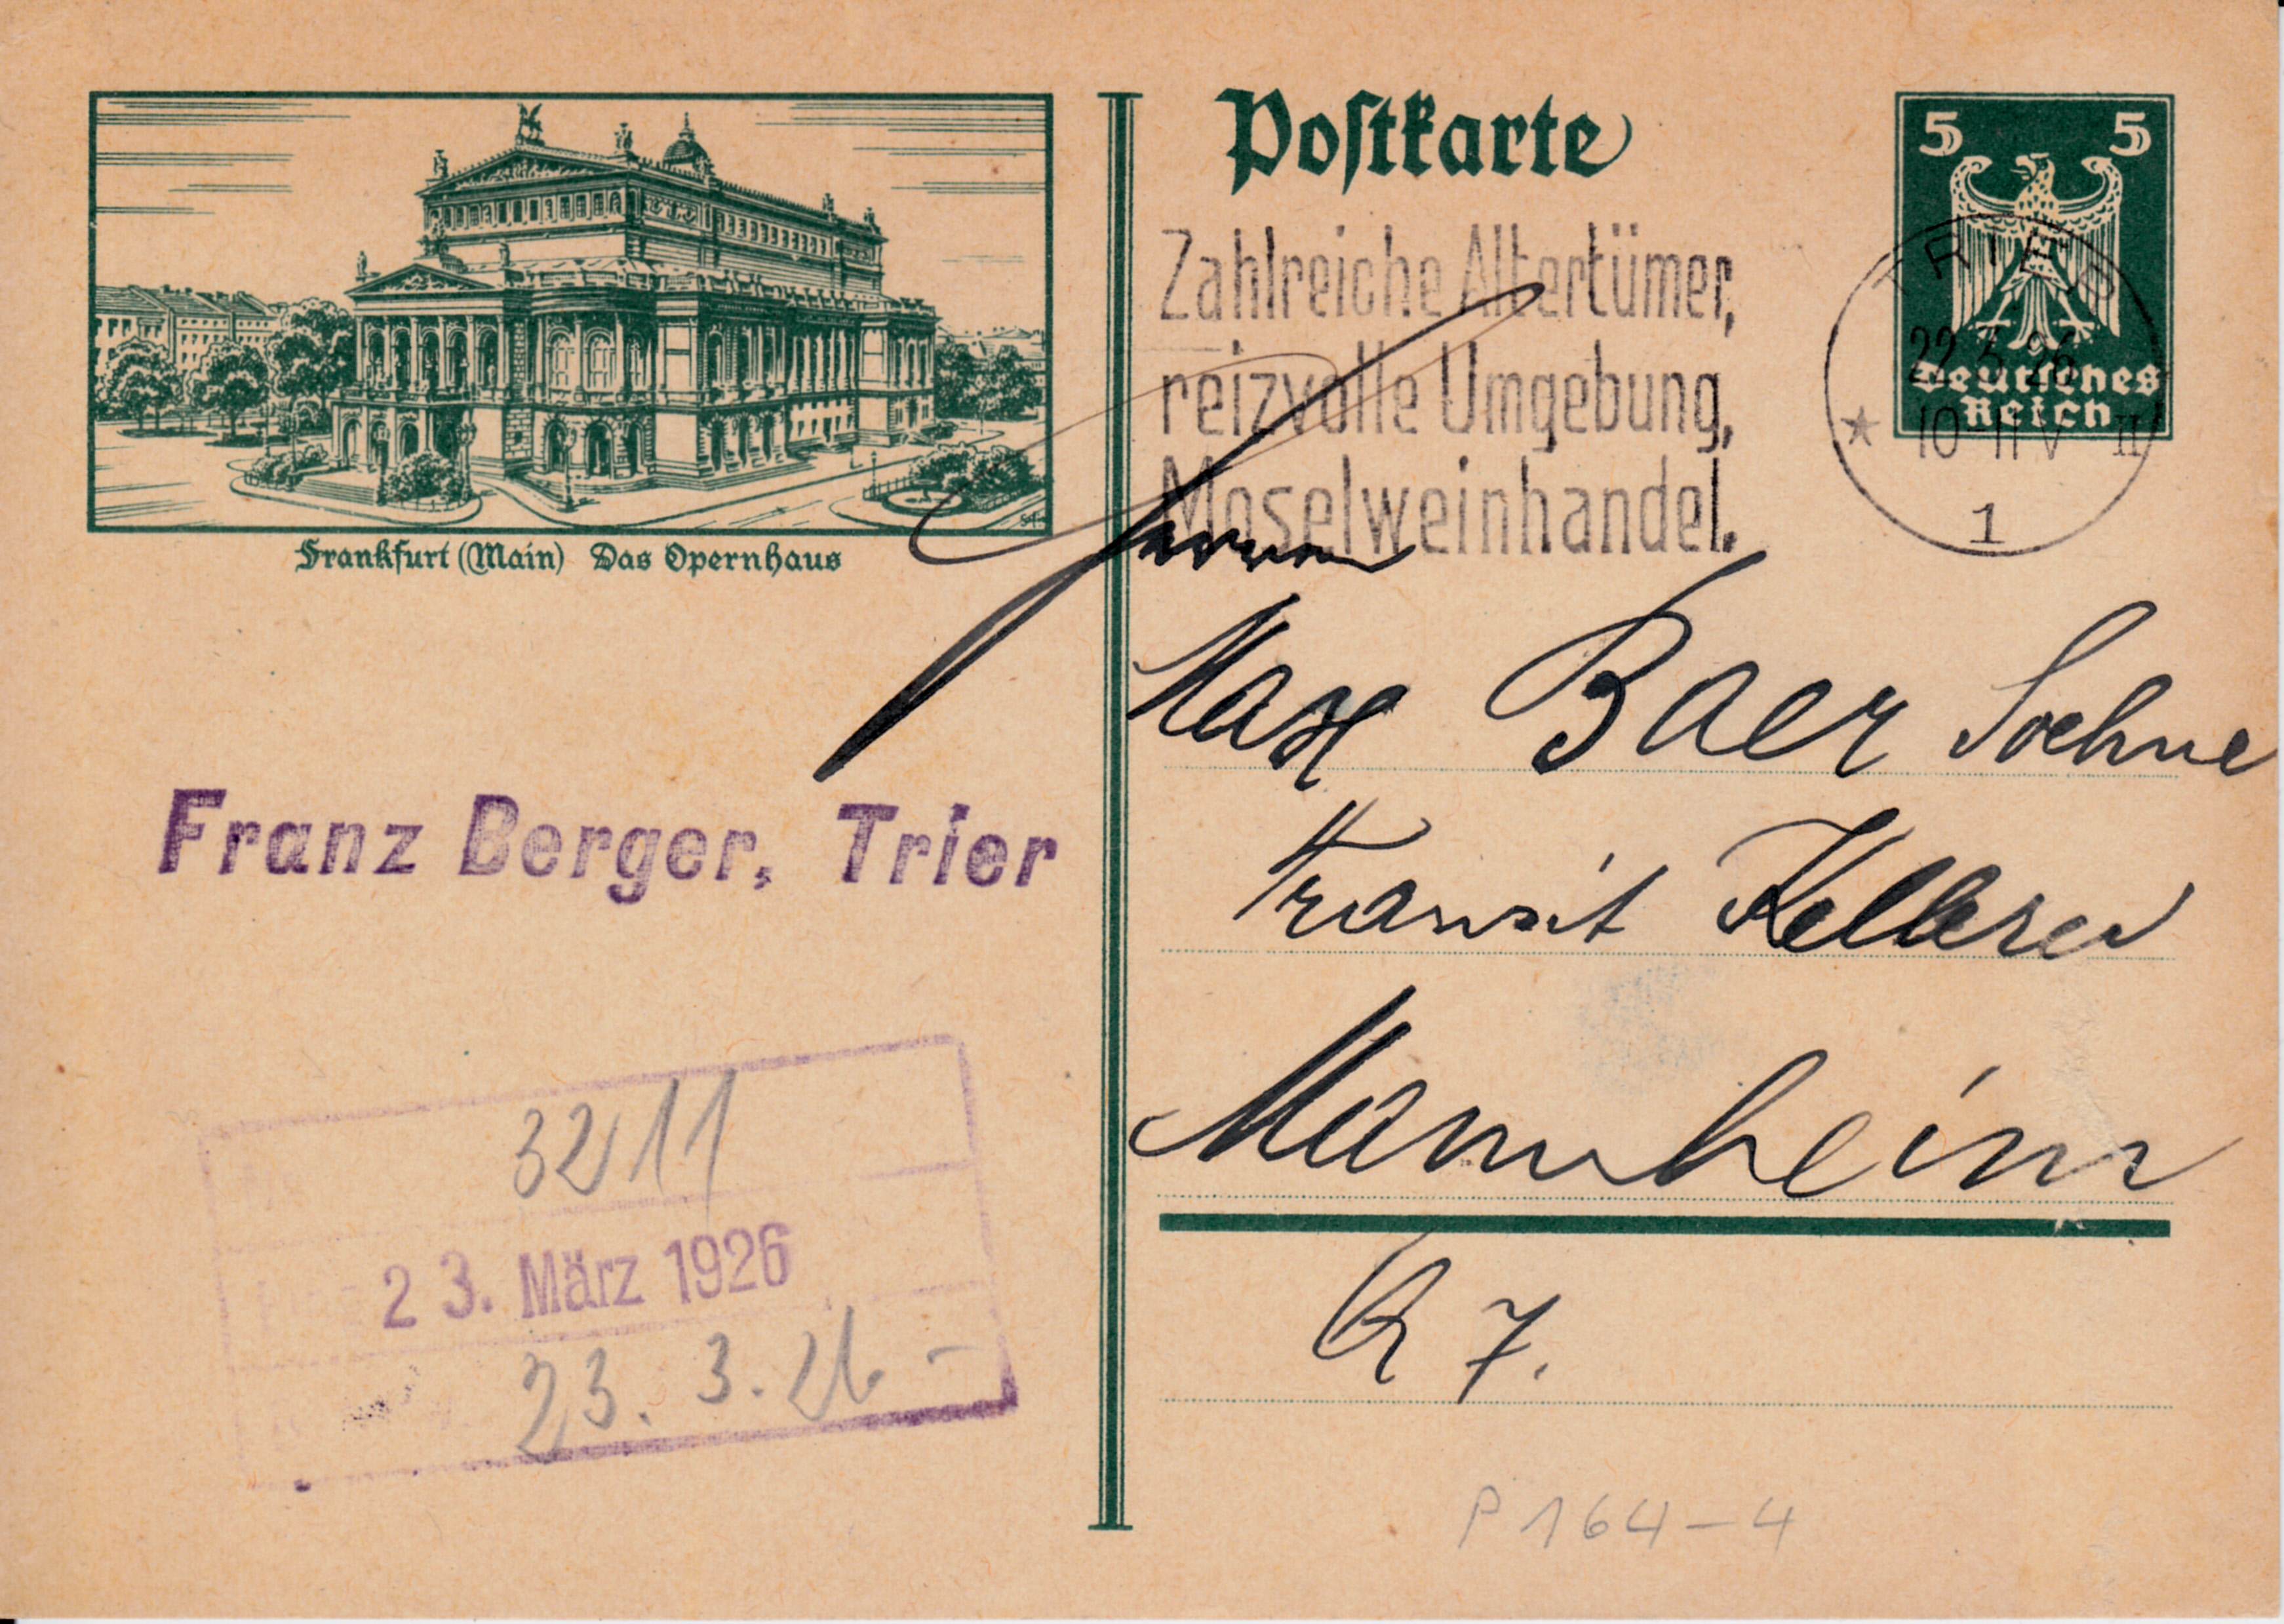 Postkarte
5 5
Deutsches
Reich
TRIER
22.3.26
* 10-11 V II
1
Zahlreiche Altertümer,
reizvolle Umgebung,
Moselweinhandel.
Frankfurt (Main) Das Opernhaus
Herren
Max Baer Soehne
Transit Kellerei
Mannheim
R 7.
Franz Berger, Trier
3211
23. März 1926
23. 3. 26 -
P 164-4